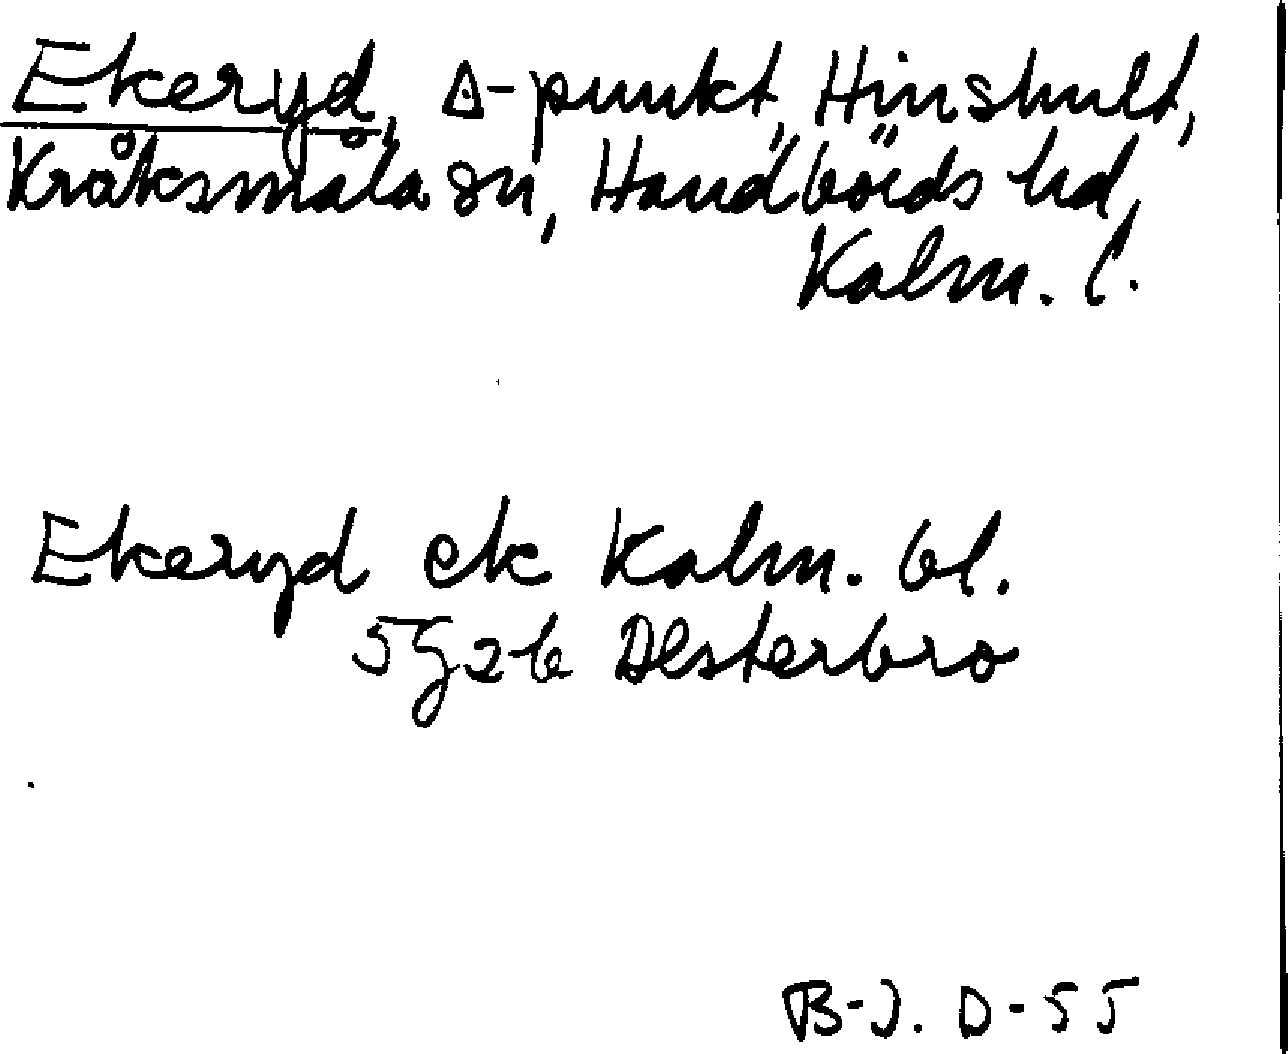 Ekeryd, Δ-punkt, Hinshult,
Kråksmåla sn, Handbörds hd,
Kalm. l.
Ekeryd ek Kalm. bl.
5G2b Alsterbro
B-J. D-55